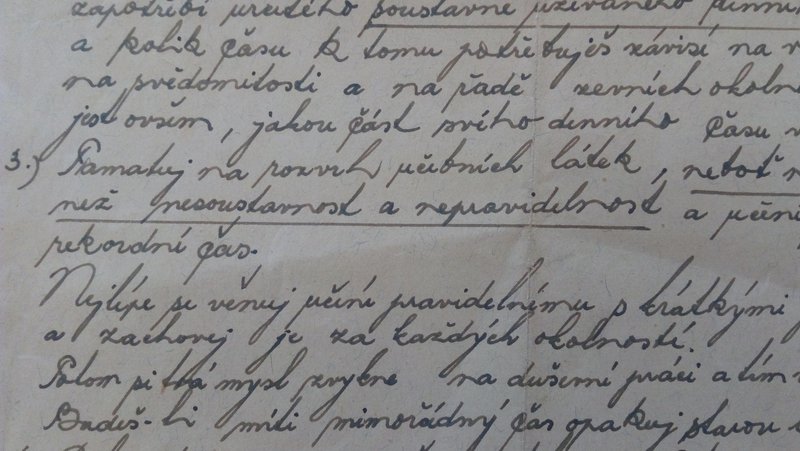 zapotřebí určitého soustavně užívaného
a kolik času k tomu potřebuješ závisí na
na svědomitosti a na řadě zevních
jest ovšem, jakou část svího denního času
3.) Pamatuj na rozvrh učebních látek, neboť
než nesoustavnost a nepravidelnost a
rekordní čas.
Nejlépe se věnuj učení pravidelnímu s krátkými
a zachovej je za každých okolností.
Potom si tvá mysl zvykne na duševní práci a tím
Budeš-li míti mimořádný čas opakuj starou